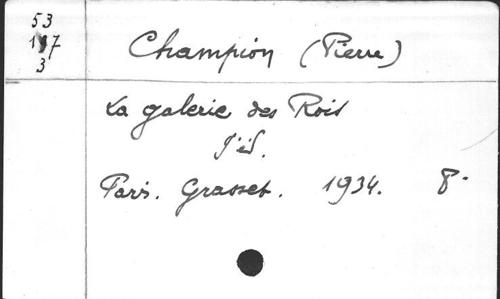 53
117
3
Champion (Pierre)
La galerie des Rois
Paris. Grasset. 1934. 8°